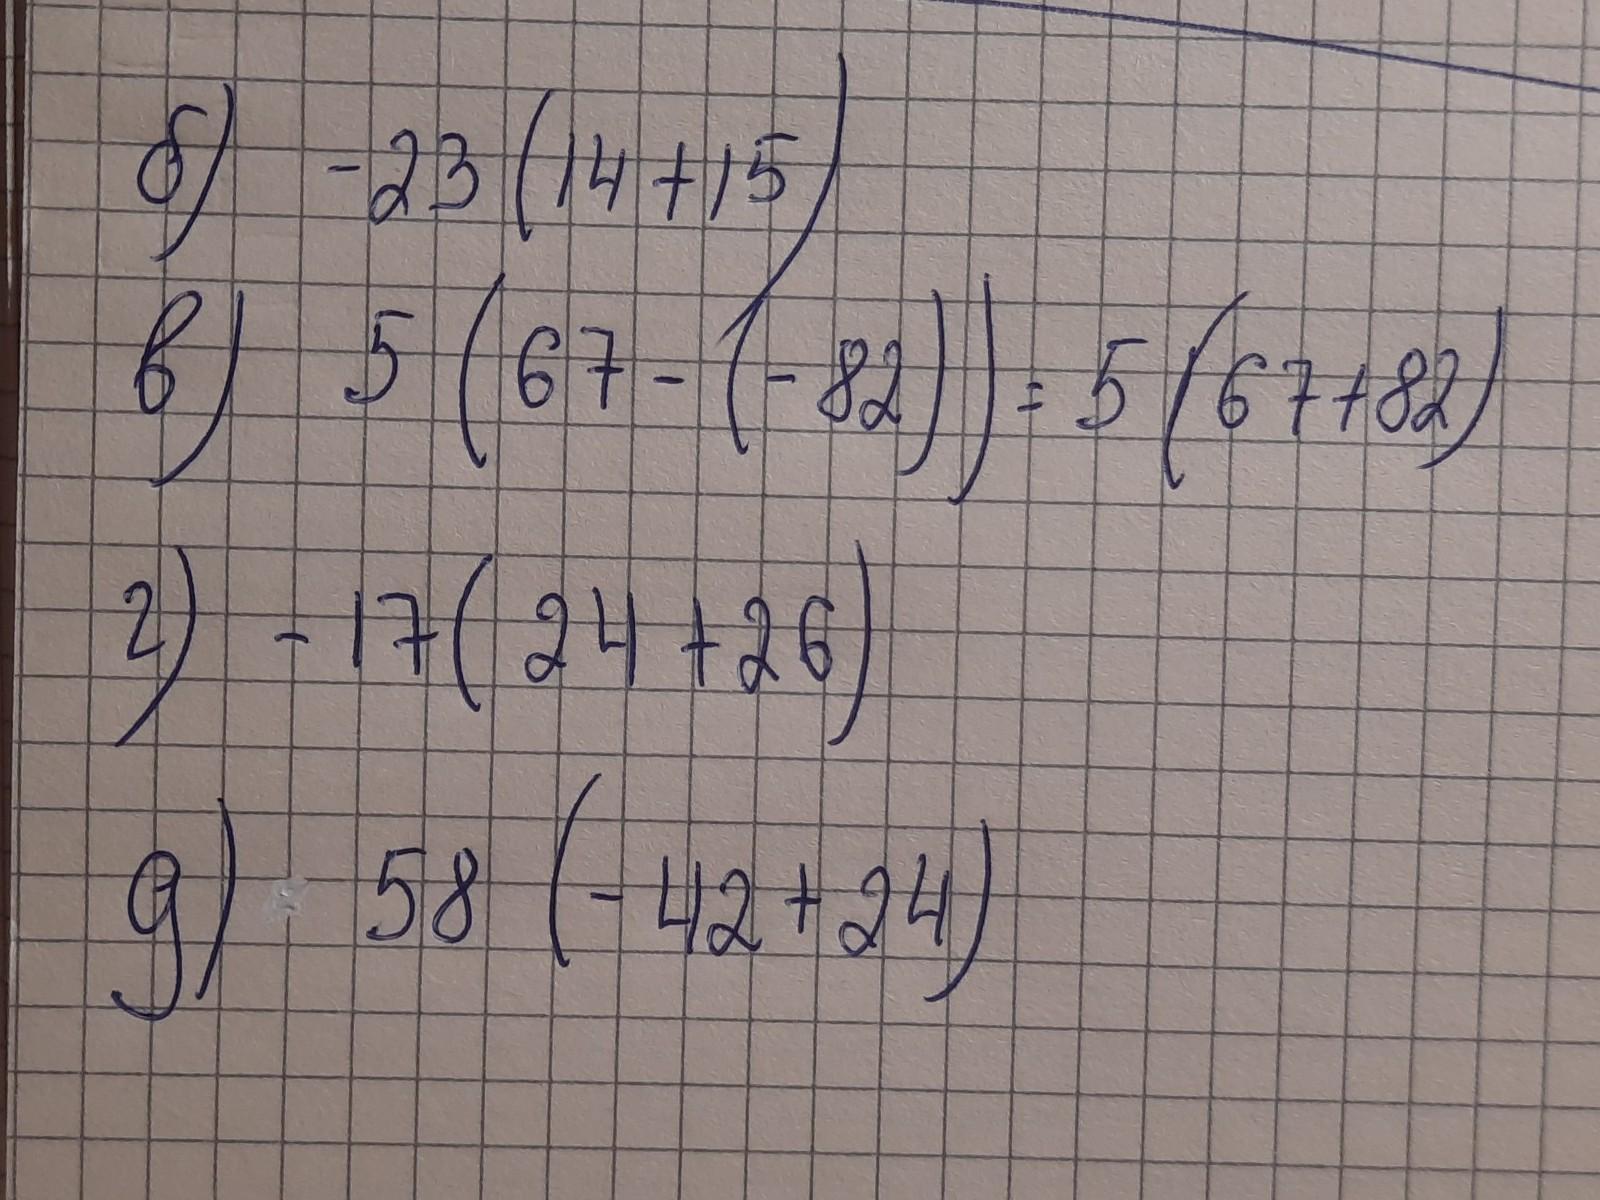 б) -23(14+15)
в) 5(67-(-82))=5(67+82)
г) -17(24+26)
д) 58(-42+24)